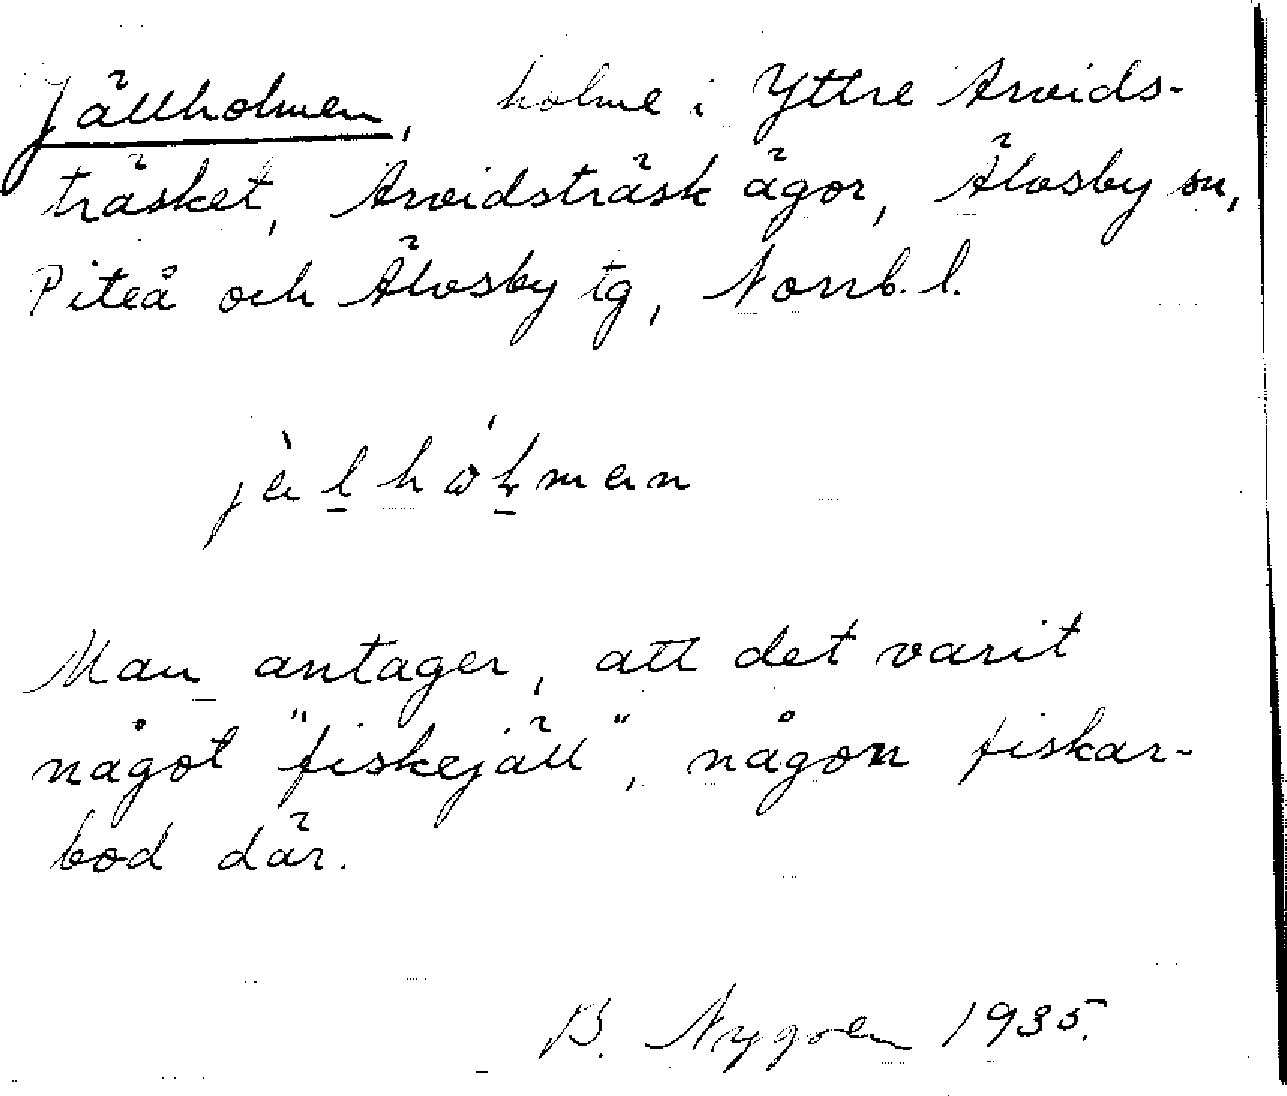 Jällholmen, holme i Yttre Arvids-
träsket, Arvidsträsk ägor, Älvsby sn,
Piteå och Älvsby tg, Norrb. l.
Man antager, att det varit
något "fiskejäll", någon fiskar-
bod där.
B. Nygren 1935.